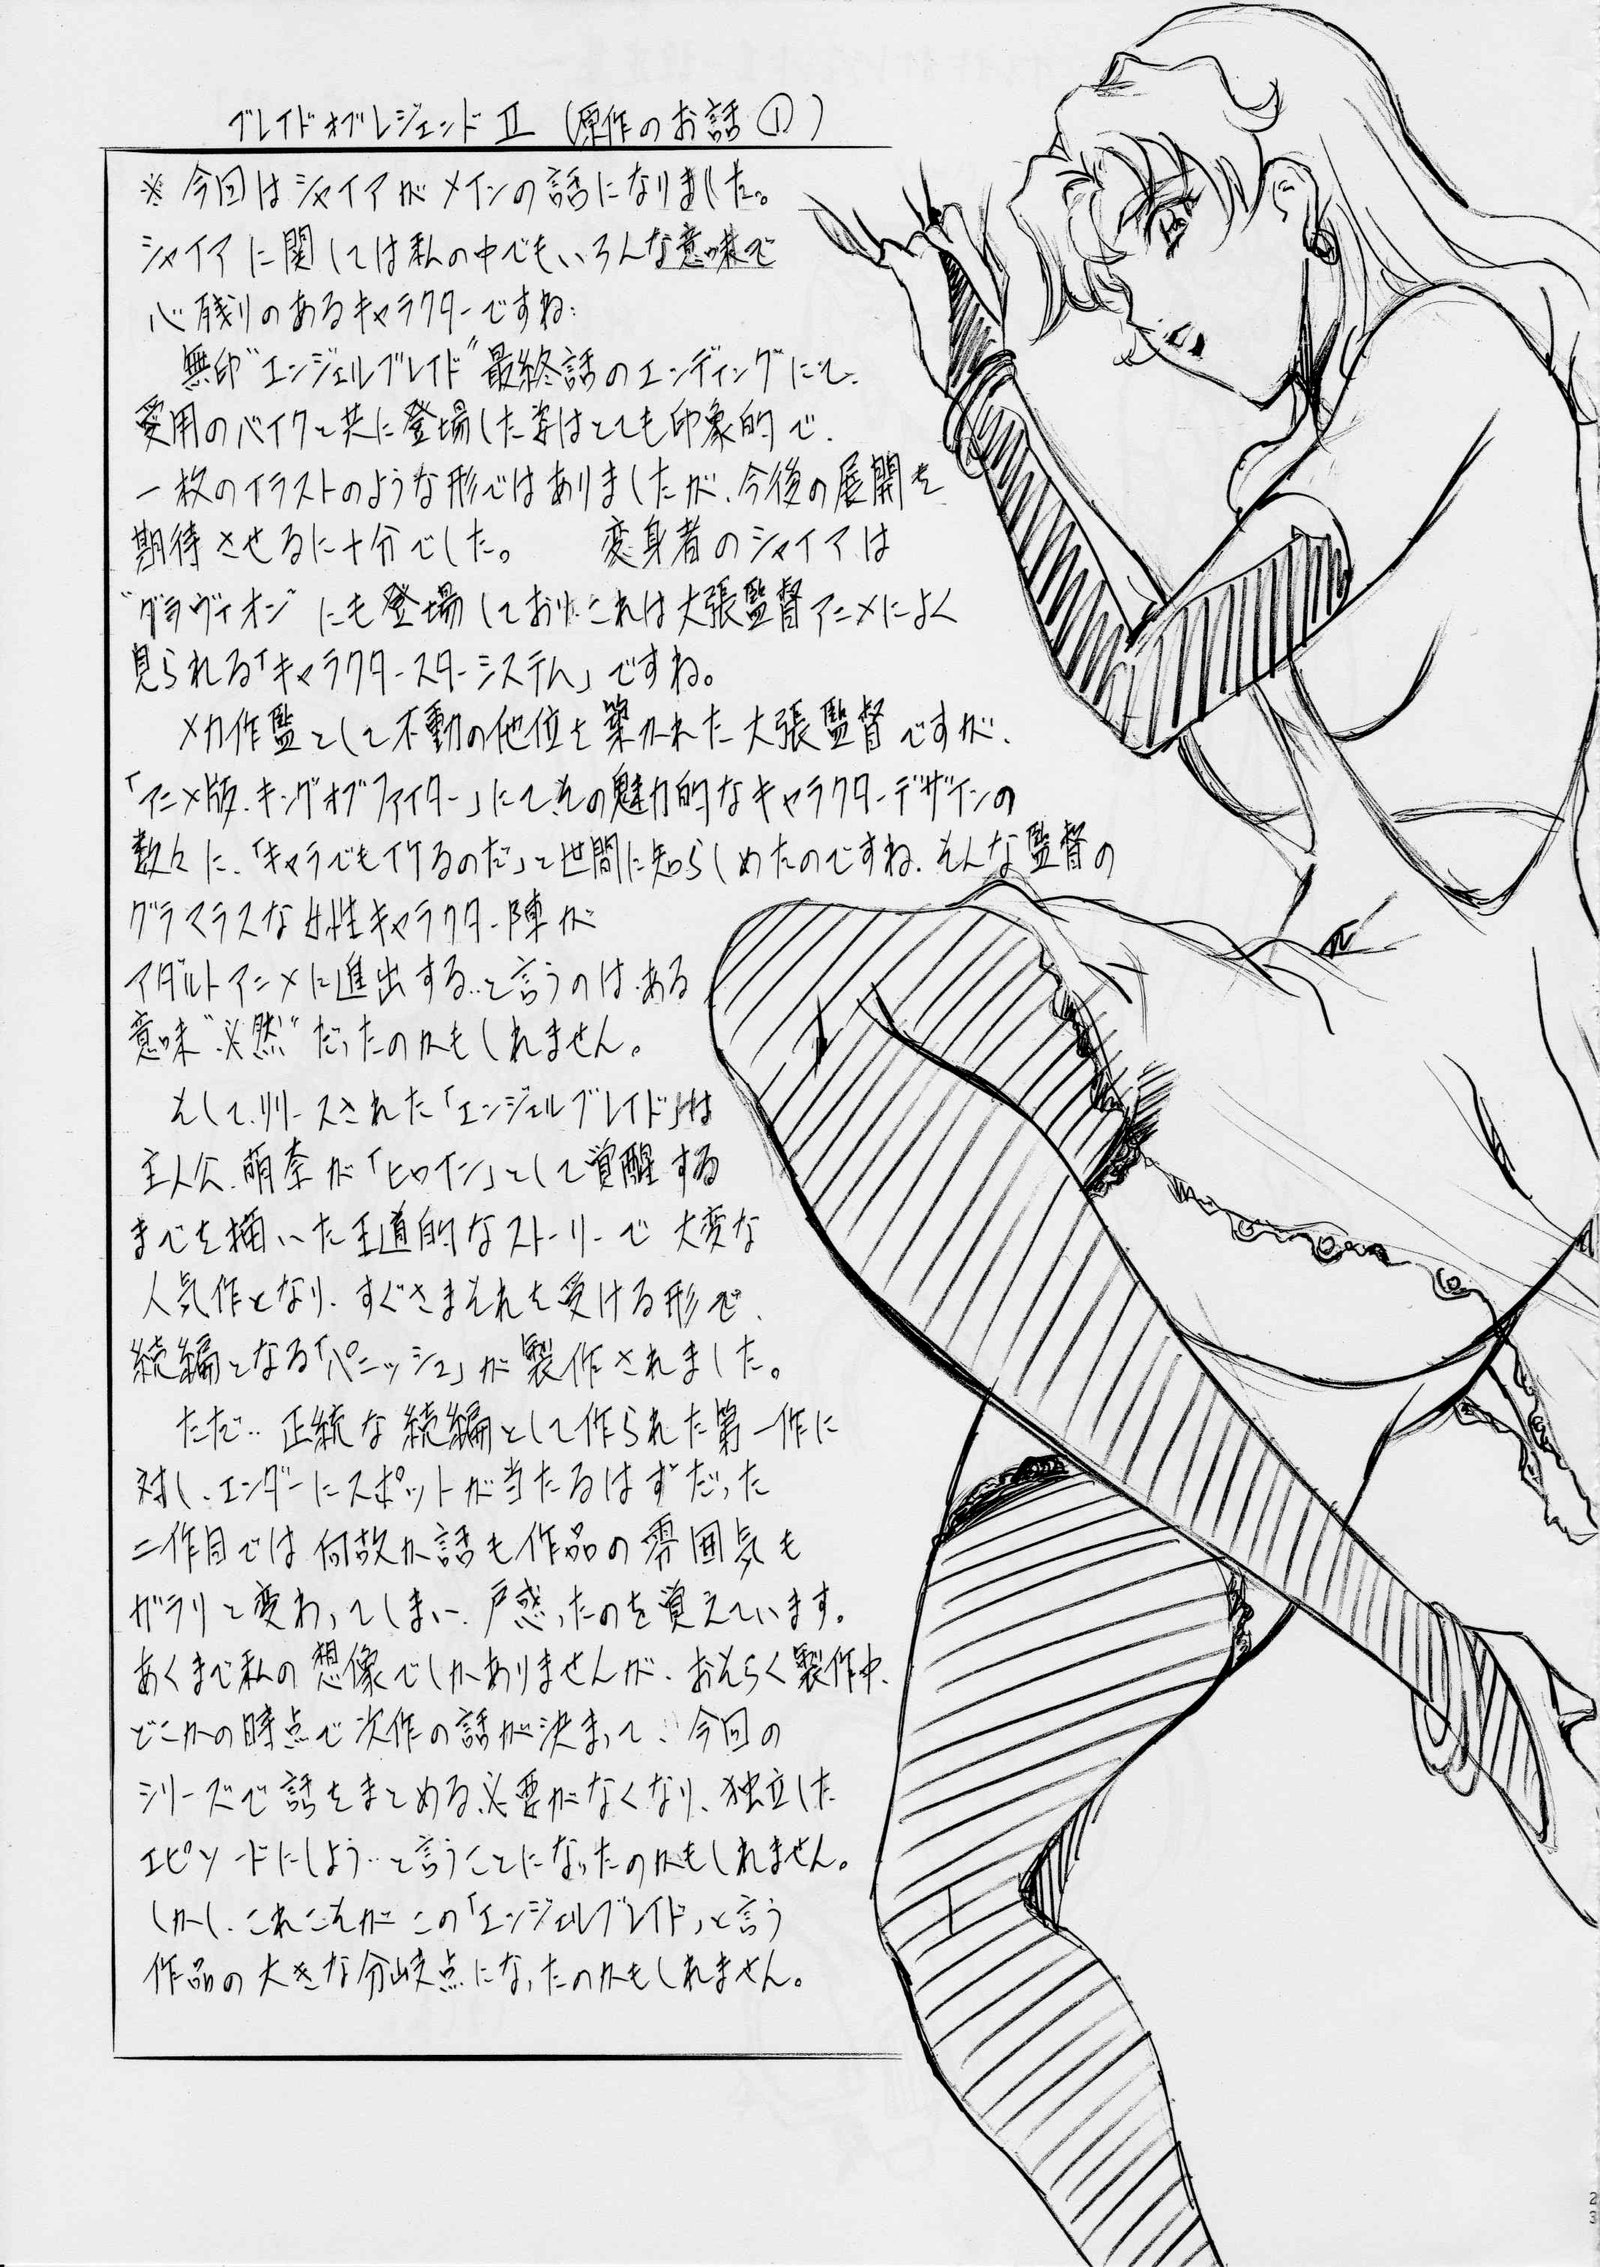 ブレイドオブレジェンドⅡ(原作のお話①)
※今回はシャイアがメインの話になりました。
シャイアに関しては私の中でもいろんな意味で
心残りのあるキャラクターですね…
無印"エンジェルブレイド"最終話のエンディングにて、
愛用のバイクと共に登場した姿はとても印象的で、
一枚のイラストのような形ではありましたが、今後の展開を
期待させるに十分でした。 変身者のシャイアは
"グラヴィオン"にも登場しており、これは大張監督アニメによく
見られる「キャラクタースターシステム」ですね。
メカ作監として不動の地位を築かれた大張監督ですが、
「アニメ版.キングオブファイター」にて、その魅力的なキャラクターデザインの
数々に、「キャラでもイケるのだ」と世間に知らしめたのですね、そんな監督の
グラマラスな女性キャラクター陣が
アダルトアニメに進出する…と言うのは、ある
意味"必然"だったのかもしれません。
そして、リリースされた「エンジェルブレイド」は
主人公、萌奈が「ヒロイン」として覚醒する
までを描いた王道的なストーリーで大変な
人気作となり、すぐさまそれを受ける形で、
続編となる「パニッシュ」が製作されました。
ただ…正統な続編として作られた第一作に
対し、エンダーにスポットが当たるはずだった
二作目では何故か話も作品の雰囲気も
ガラリと変わってしまい、戸惑ったのを覚えています。
あくまで私の想像でしかありませんが、おそらく製作中、
どこかの時点で次作の話が決まって…今回の
シリーズで話をまとめる必要がなくなり、独立した
エピソードにしよう…と言うことになったのかもしれません。
しかし、これこそがこの「エンジェルブレイド」と言う
作品の大きな分岐点になったのかもしれません。
23